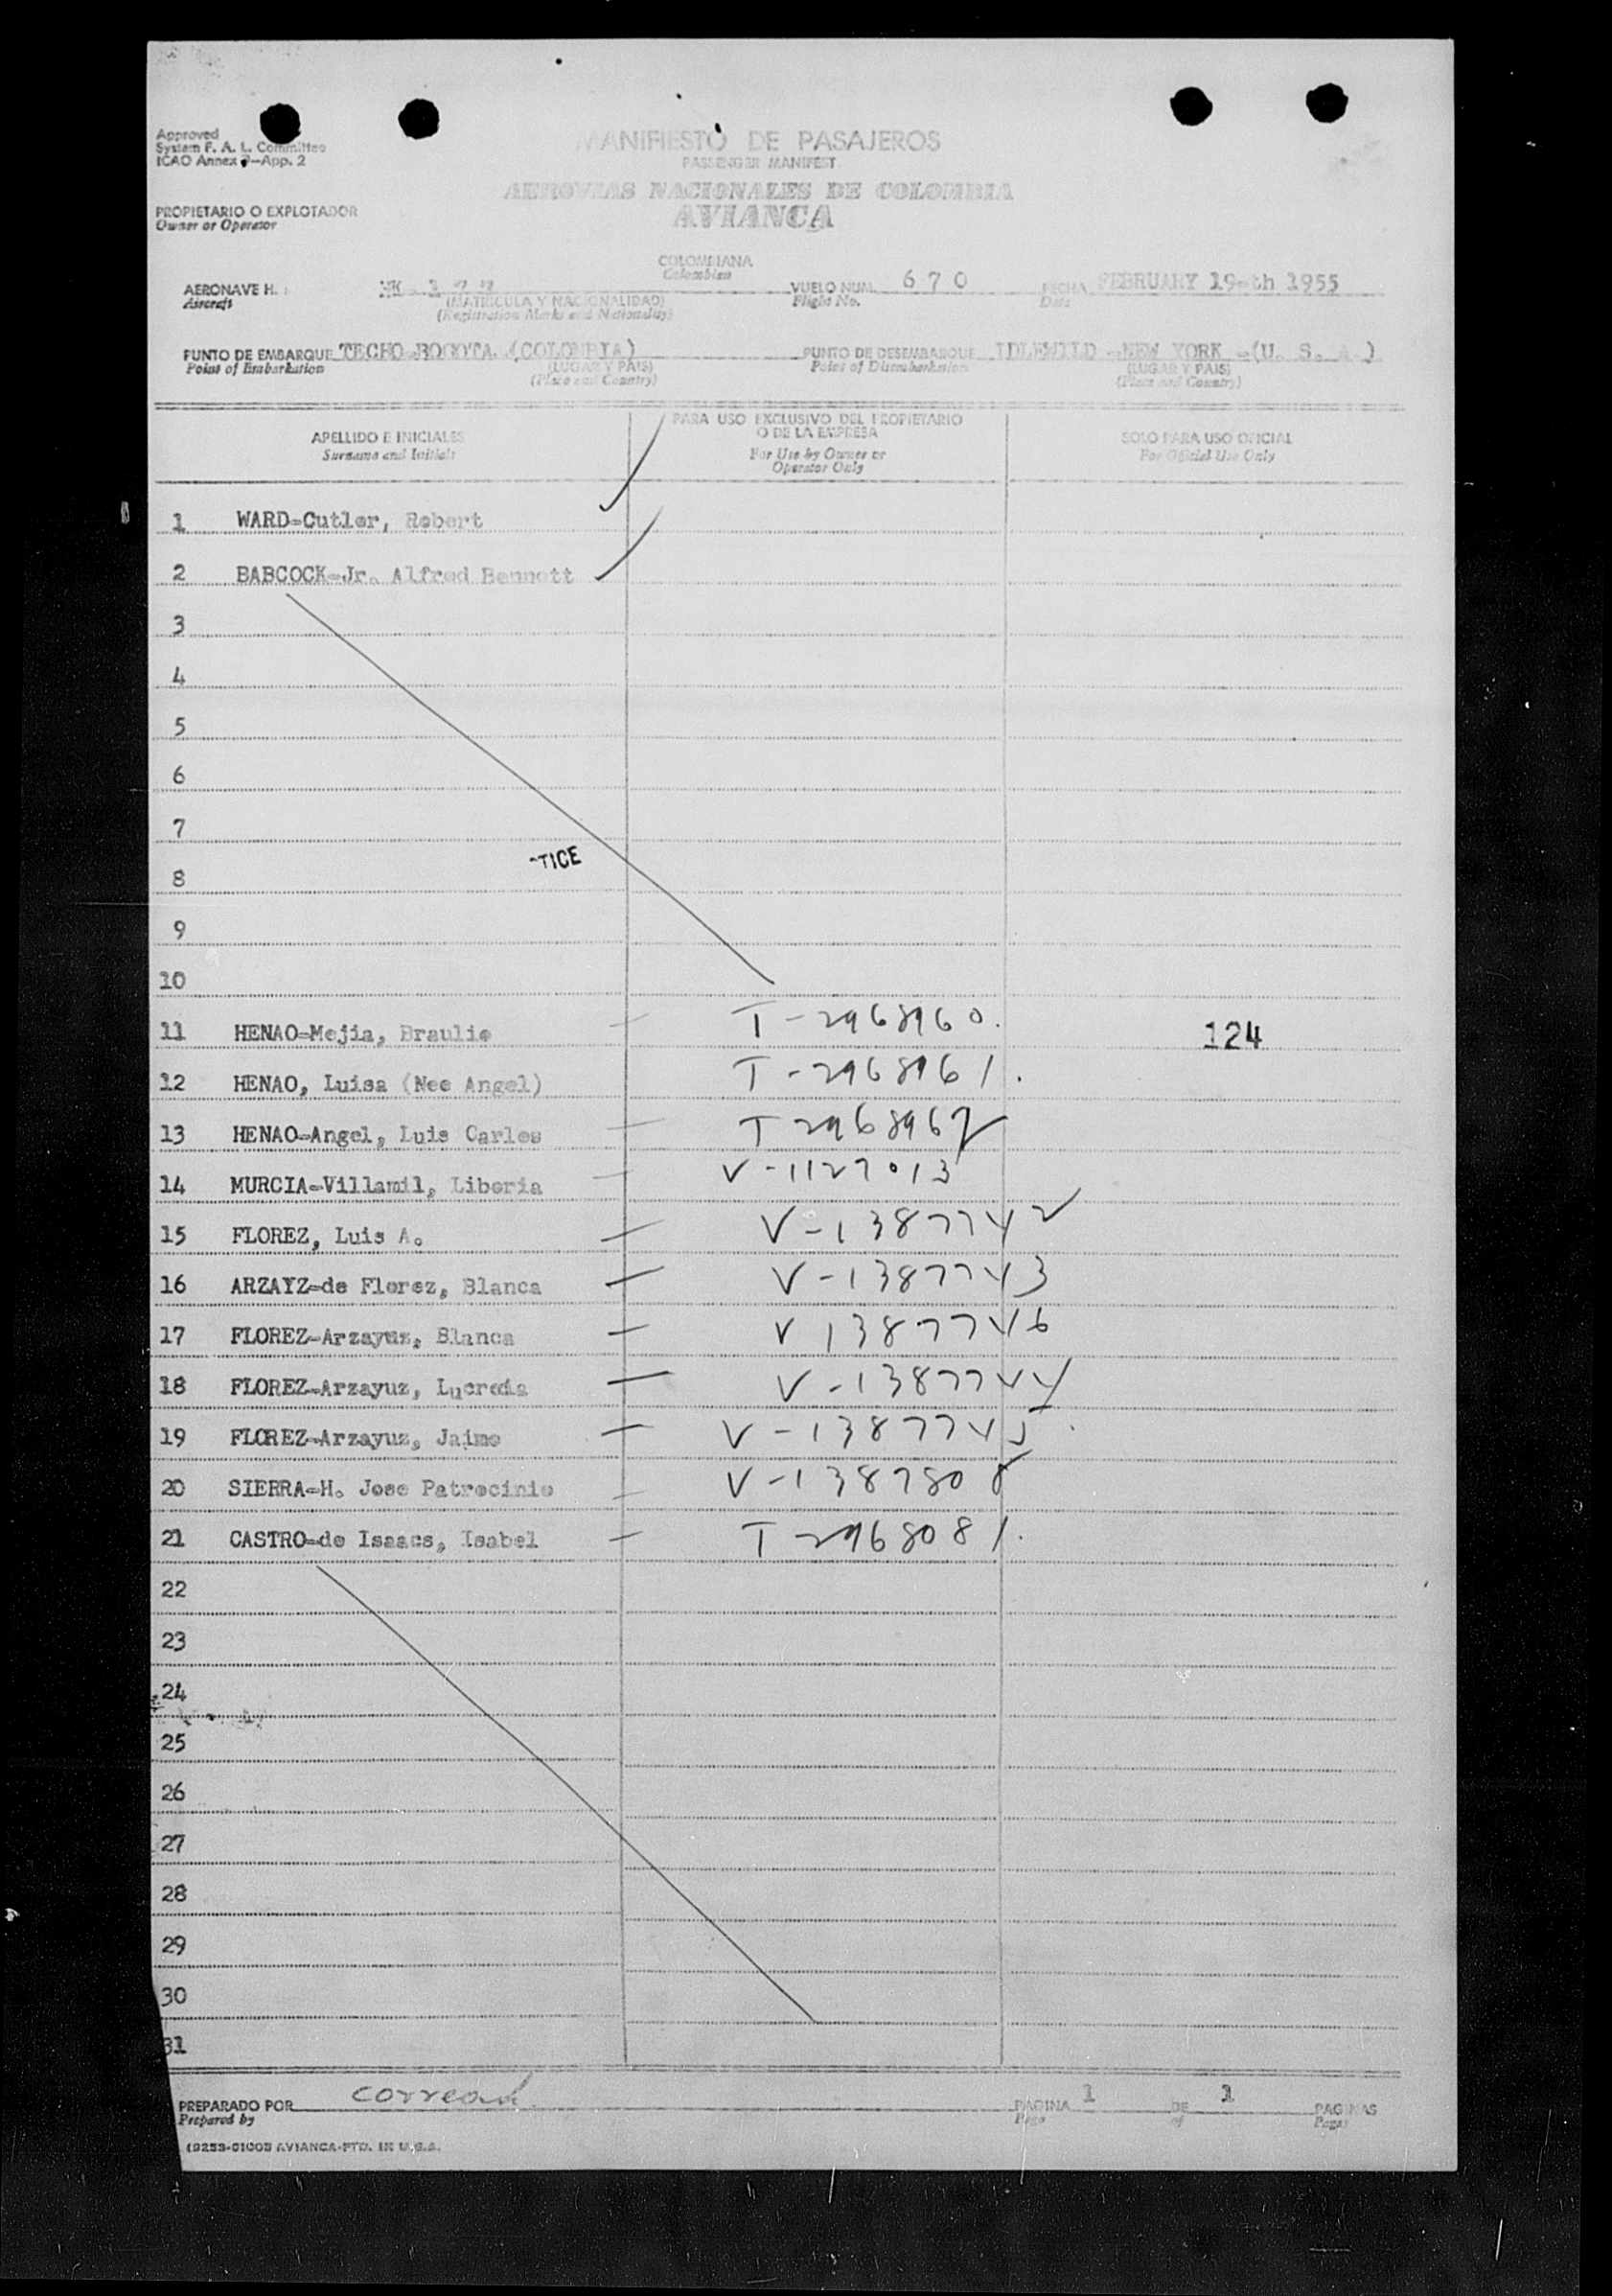 Approved
System F. A. L. Committee
ICAO Annex 9-App. 2
MANIFIESTO DE PASAJEROS
PASSENGER MANIFEST
AEROVIAS NACIONALES DE COLOMBIA
AVIANCA
PROPIETARIO O EXPLOTADOR
Owner or Operator
COLOMBIANA
Colombian
AERONAVE H. VUELO NUM. 670 FECHA FEBRUARY 19-th 1955
Aircraft (MATRICULA Y NACIONALIDAD) Flight No. Date
(Registration Marks and Nationality)
PUNTO DE EMBARQUE TECHO-BOGOTA (COLOMBIA) PUNTO DE DESEMBARQUE IDLEWILD -NEW YORK -(U. S. A.)
Point of Embarkation (LUGAR Y PAIS) Point of Disembarkation (LUGAR Y PAIS)
(Place and Country) (Place and Country)
APELLIDO E INICIALES PARA USO EXCLUSIVO DEL PROPIETARIO O DE LA EMPRESA SOLO PARA USO OFICIAL
Surname and Initials For Use by Owner or Operator Only For Official Use Only
1 WARD-Cutler, Robert
2 BABCOCK-Jr. Alfred Bennett
3
4
5
6
7
TICE
8
9
10
11 HENAO-Mejia, Braulio — T-2968960. 124
12 HENAO, Luisa (Nee Angel) T-2968961.
13 HENAO-Angel, Luis Carlos — T 2968962
14 MURCIA-Villamil, Liboria — V-1127013
15 FLOREZ, Luis A. — V-1387742
16 ARZAYZ-de Florez, Blanca — V-1387743
17 FLOREZ-Arzayuz, Blanca — V 1387746
18 FLOREZ-Arzayuz, Lucrecia — V-1387744
19 FLOREZ-Arzayuz, Jaime — V-1387745
20 SIERRA-H. Jose Patrocinio — V-1387808
21 CASTRO-de Isaacs, Isabel — T 2968081.
22
23
24
25
26
27
28
29
30
31
PREPARADO POR PAGINA 1 DE 1 PAGINAS
Prepared by Page of Pages
AVIANCA-PTD. IN U.S.A.